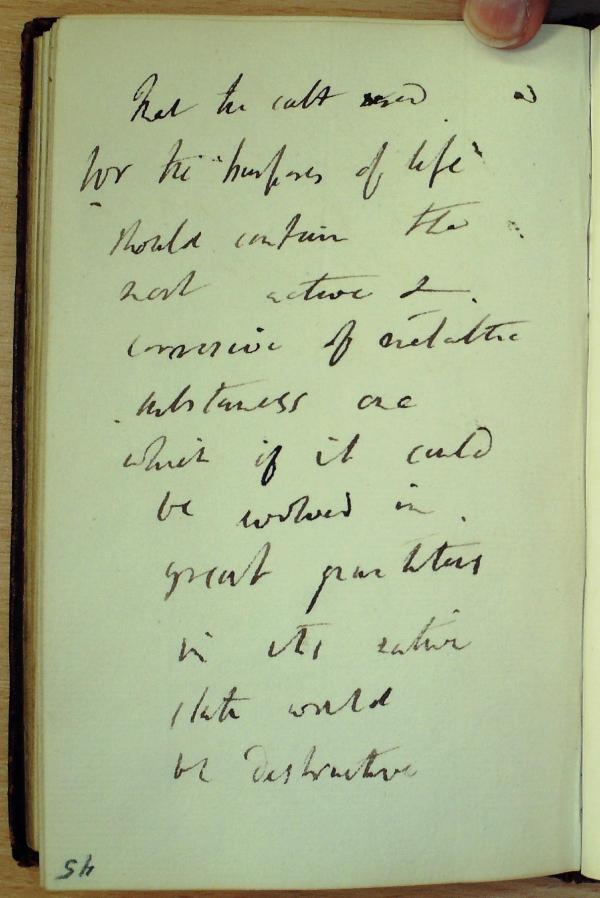 that the salt used
for the "purposes of life"
should contain the
most active &
corrosive of metallic
substances one
which if it could
be evolved in
great quantities
in its native
state would
be destructive
45